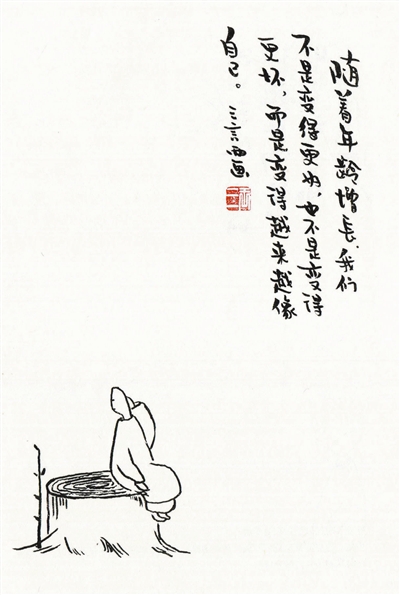 随着年龄增长,我们
不是变得更好,也不是变得
更坏,而是变得越来越像
自己。三言西画